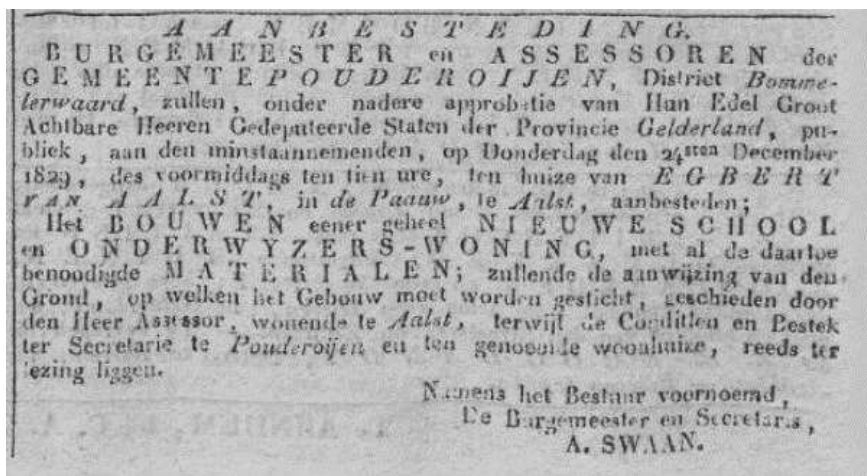 AANBESTEDING.
BURGEMEESTER en ASSESSOREN der
GEMEENTE POUDEROIJEN, District Bomme-
lerwaard, zullen, onder nadere approbatie van Hun Edel Groot
Achtbare Heeren Gedeputeerde Staten der Provincie Gelderland, pu-
bliek, aan den minstaannemenden, op Donderdag den 24sten December
1829, des voormiddags ten tien ure, ten huize van EGBERT
VAN AALST, in de Paauw, te Aalst, aanbesteden;
Het BOUWEN eener geheel NIEUWE SCHOOL
en ONDERWYZERS-WONING, met al de daartoe
benoodigde MATERIALEN; zullende de aanwijzing van den
Grond, op welken het Gebouw moet worden gesticht, geschieden door
den Heer Assessor, wonende te Aalst, terwijl de Conditien en Bestek
ter Secretarie te Pouderoijen en ten genoemde woonhuize, reeds ter
lezing liggen.
Namens het Bestuur voornoemd,
De Burgemeester en Secretaris,
A. SWAAN.